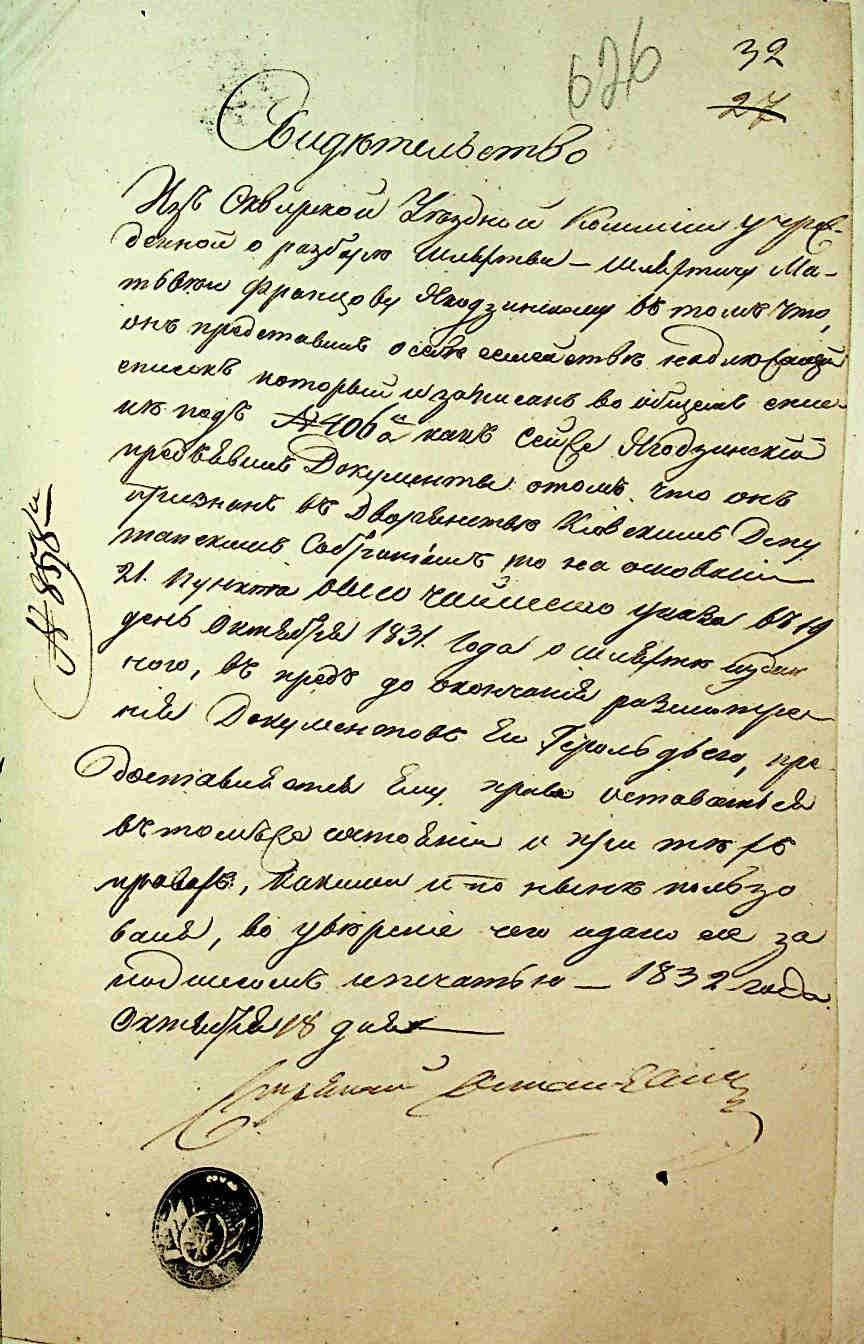 626
32
27
Свидѣтельство
Изъ Сквирской Уездной Комміси учреж-
денной о разборѣ Шляхты – шляхтичу Ма-
тьвѣю Францову Ягодзинскому въ томъ что,
онъ представилъ о себѣ и семействѣ надлежащій
списокъ который и записанъ во общемъ спис-
кѣ подъ №406м а какъ сей же Ягодзинскій
предъявилъ Документы отомъ что онъ
признанъ въ Дворянствѣ Кіевскимъ Депу
татскимъ Собраніемъ, то на основаніи
21. пункта высочайшего указа въ 19
день Октября 1831. Года о шляхтѣ издан
ного, въ предь до окончанія разсмотре
нія Документовъ Ея Герольдіею, пре
доставляется Ему право оставаться
въ томъже состояніи и при тѣхъ
правахъ, какими и по нынѣ пользо
вался, во увѣреніе чего и дано сіе за
подписомъ и печатью – 1832 года
Октября 18 дня
№858й